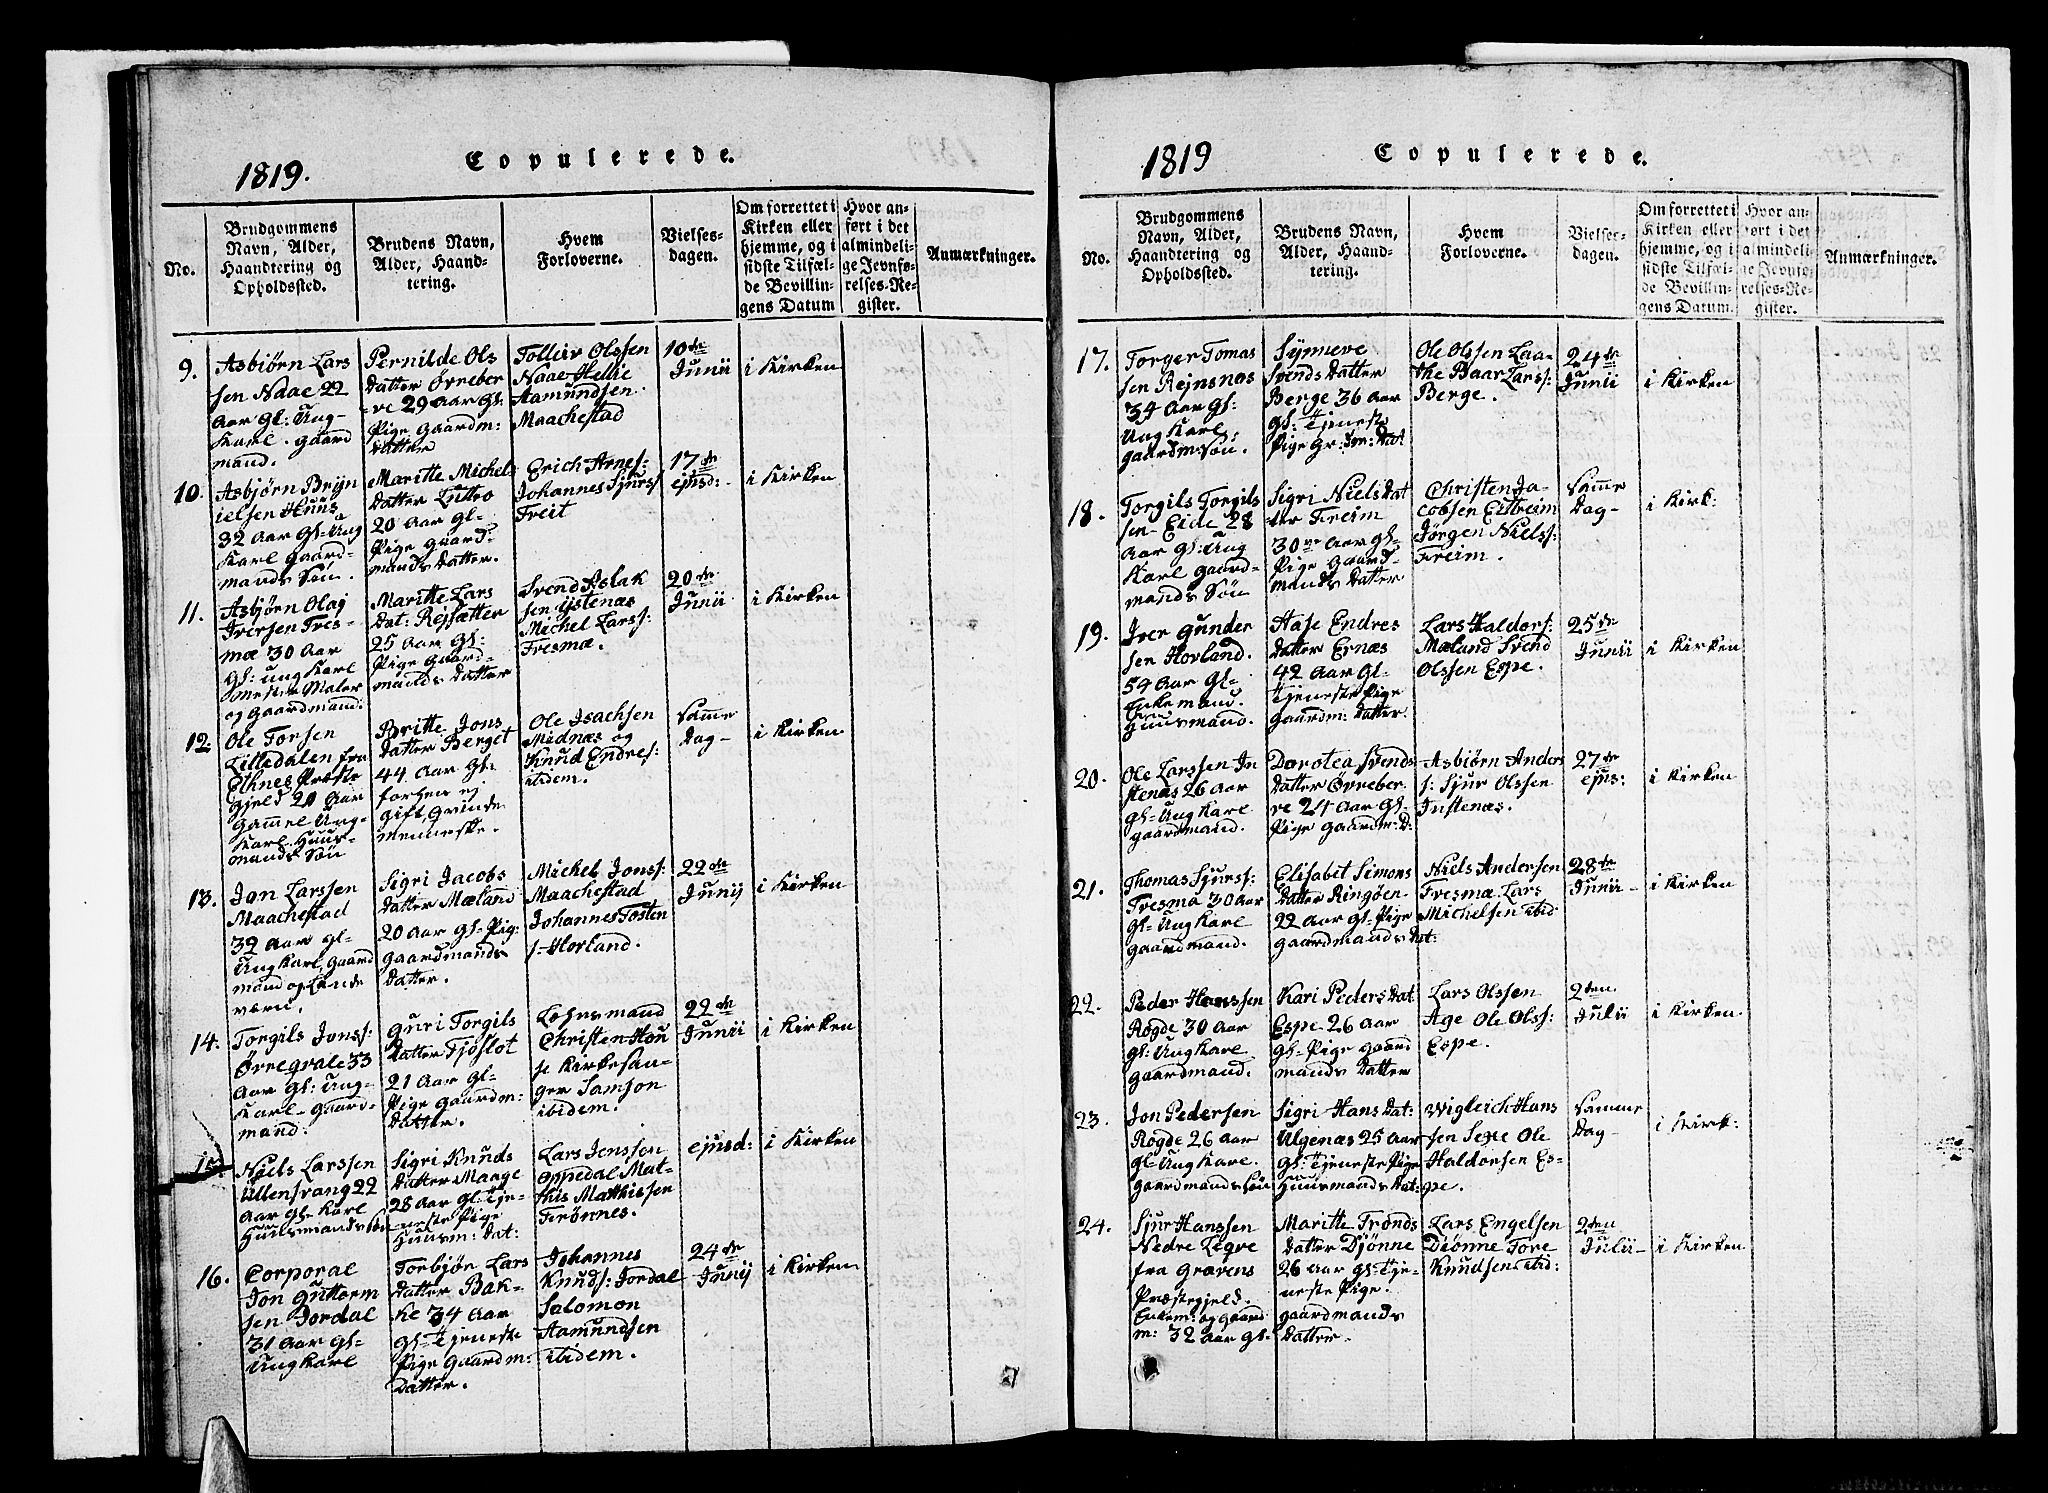 1819. Copulerede.
No.
Brudgommens
Navn, Alder,
Haandtering og
Opholdssted.
Brudens Navn,
Alder, Haand-
tering.
Hvem
Forloverne.
Vielses-
dagen.
Om forrettet i
Kirken eller
hjemme, og i
sidste Tilfæl-
de Bevillin-
gens Datum
Hvor an-
ført i det
almindeli-
ge Jevnfø-
relses-Re-
gister.
Anmærkninger.
9.
Asbiørn Lars
sen Naae 22
Aar Gl: Ung-
Karl. gaard
mand.
Pernilde Ols
Datter Ørreber
-re 29 Aar Gl:
Pige Gaardm:
Datter
Tolleiv Olssen
Naae Hellie
Aamundsen
Maachestad
10de
Junii
i Kirken
10.
Asbjørn Brÿn
ielsen Huus
32 Aar Gl: Ung
Karl Gaard-
mands Søn.
Maritte Michels
Datter Lutro
20 Aar Gl-
Pige gaard-
mands Datter.
Erich Arnes:
Johannes Sjurs:
Freit
17de
ejusd:
i Kirken
11.
Asbjørn Olag
Iversen Tres-
mæ 30 Aar
Gl: ung Karl
Mester Maler
og Gaardmand.
Maritte Lars
Dat: Rejsæter
25 Aar Gl:
Pige Gaard-
mands Datter
Svend Aslak
sen Ystenæs
Michel Larss:
Tresmæ.
20de
Junii
i Kirken
12.
Ole Torsen
Lilledalen fra
Ethnes Præste
gjeld 20 Aar
Gammel Ung-
Karl. Huus-
mands Søn
Britte Jons
Datter Berget
44 Aar Gl:
forhen ej
gift, qvinde
menneske.
Ole Isachsen
Midnæs og
Knud Endres:
itidem.
Samme
Dag-
i Kirken
13.
Jon Larssen
Maachestad
32 Aar Gl-
Ung Karl, Gaard
mand og Lande
væru.
Sigri Jacobs
Datter Mæland
20 Aar Gl- Pig:
Gaardmands
Datter.
Michel Jonss:
Maachestad
Johannes Tosten
s:- Hovland.
22de
Junij
i Kirken
14.
Torgils Jonss:
Ørregrale 33
Aar Gl: Ung-
Karl- Gaard-
mand.
Guri Torgils
Datter Tjoflot
21 Aar Gl-
Pige Gaardm:
Datter.
Lehnsmand
Christen Hou
se Kirkesan-
ger Samson
ibidem.
22de
Junii
i Kirken
15.
Niels Larssen
Ullensvang 22
Aar Gl: Karl
Huusmands Søn
Sigri Knuds
Datter Maage
28 Aar Gl: Tje-
neste Pige
Huusm: Dat:
Lars Jonssen
Oppedal Mat-
this Matthissen
Trønnes.
ejusd:
i Kirken
16.
Corporal
Jon Guttorm
sen Jordal
31 Aar Gl:
Ung Karl
Torbjør Lars
Datter Bak-
ke 34 Aar
Gl: Tjeneste
Pige Gaardm:
Datter.
Johannes
Knuds: Jordal
Salomon
Aamundsen
itidem.
24de
Junij
i Kirken
1819 Copulerede.
No.
Brudgommens
Navn, Alder,
Haandtering og
Opholdssted.
Brudens Navn,
Alder, Haand-
tering.
Hvem
Forloverne.
Vielses-
dagen.
Om forrettet i
Kirken eller
hjemme, og i
sidste Tilfæl-
de Bevillin-
gens Datum.
Hvor an-
ført i det
almindeli-
ge Jevnfø-
relses-Re-
gister.
Anmærkninger.
17.
Torger Tomas
sen Rejnsnos
34 Aar Gl:
Ung Karl
gaardm: Søn.
Synneve
Svends Datter
Berge 36 Aar
Gl: Tjeneste
Pige Gr: Dat
Ole Olssen Laa-
the Baar Larss:
Berge.
24de
Junii
i Kirken
18.
Torgils Torgils
sen- Eide 28
Aar Gl: Ung
Karl Gaard-
mands Søn
Sigri Niels Dat
ter Freim
30 Aar Gl-
Pige Gaard-
mands Datter
Christen Ja-
cobsen Eitreim
Jørgen Nielss:
Freim.
Samme
Dag-
i Kirk:
19.
Iver Gunder
sen Hovland.
54 Aar Gl-
Enkemand.
Huusmand.
Hase Endres
Datter Ernæs
42 Aar Gl-
Tjeneste Pige
Gaardm: Datter.
Lars Haldors:
Mæland Svend
Olssen Espe.
25de
Junii
i Kirken
20.
Ole Larssen In
stenæs 26 Aar
Gl- Ung Karl
Gaardmand.
Dorotea Svends
Datter Ørreber
re 21 Aar Gl-
Pige Gaardm: D:
Asbiørn Anders
s: Sjur Olssen
Instenæs.
27de
ejus:
i Kirken
21.
Thomas Sjurss:
Tresma 30 Aar
Gl- Ung Karl
Gaardmand.
Elisabet Simons
Datter Ringøen
22 Aar Gl- Pige
Gaardmands Dat:
Niels Andersen
Tresmæ Lars
Michelsen ibid
28de
Junii-
i Kirken
22.
Peder Hanssen
Rogde 30 Aar
Gl: Ung Karl
Gaardmand.
Kari Peders Dat
Espe 26 Aar
Gl- Pige Gaard
mands Datter
Lars Olssen
Age Ole Olss:
Espe.
2den
Julii
i Kirken
23.
Jon Pedersen
Rogde 26 Aar
Gl- Ung Karl.
Gaardmands Søn
Sigri Hans Dat:
Ulgenæs 25 Aar
Gl: Tjeneste Pige
Huusmands Dat:
Wigleich Hans
sen Sexe Ole
Haldorsen Es-
pe.
Samme
Dag-
i Kirk:
24.
Sjur Hanssen
Nedre Legre
fra Gravens
Præstegjeld.
Enkem: og Gaard
m: 32 Aar Gl-
Maritte Tronds
Datter Djønne
26 Aar Gl: Tje-
neste Pige.
Gaardmands
Datter.
Lars Engelsen
Diønne Tore
Knudsen ibid:
2den
Julii-
i Kirken